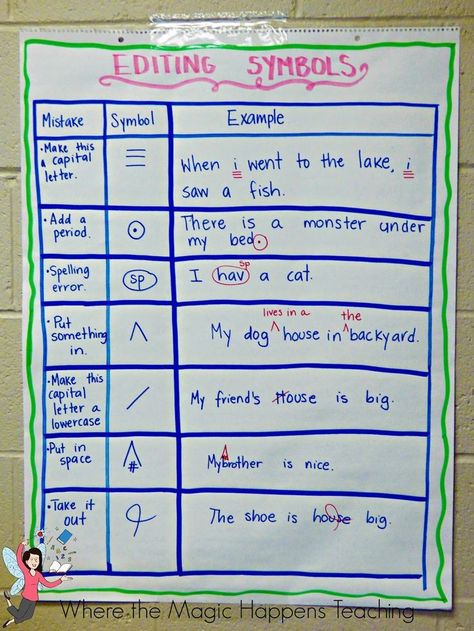 EDITING SYMBOLS
Mistake Symbol Example
• Make this
a capital
letter.
When i went to the lake, i
saw a fish.
• Add a
period.
There is a monster under
my bed.
• Spelling
error.
sp
sp
I hav a cat.
• Put
something
in.
lives in a the
My dog house in backyard.
• Make this
capital
letter a
lowercase
My friend's House is big.
• Put in
space
#
My brother is nice.
• Take it
out
The shoe is house big.
Where the Magic Happens Teaching